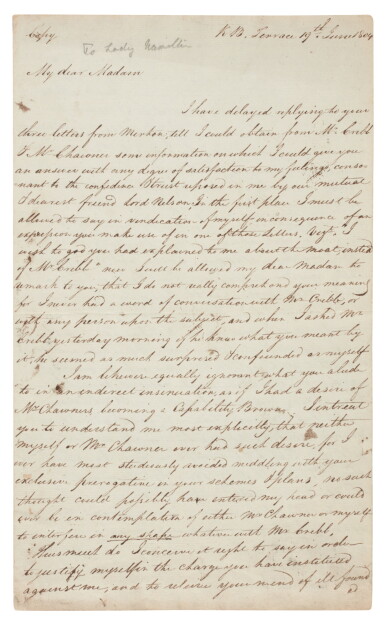 Copy
K B. Terrace 19th June 1804
To Lady Hamilton
My dear Madam
I have delayed replying to your
three letters from Merton, till I could obtain from Mr. Cribb
& Mr Chawner some information on which I could give you
an answer with any degree of satisfaction to my feelings, conso-
nant to the confidence & trust reposed in me by our mutual
& dearest friend Lord Nelson. In the first place I must be
allowed to say in vindication of myself in consequence of an
expression you make use of in one of those letters, Viz.t I
wish to god you had explained to me about the moat, instead
of Mr Cribb" now I must be allowed my dear Madam to
remark to you, that I do not really comprehend your meaning
for I never had a word of conversation with Mr Cribb, or
with any person upon the subject, and when I asked Mr
Cribb yesterday morning if he knew what you meant by
it, he seemed as much surprised & confounded as myself
I am likewise equally ignorant what you allude
to in an indirect insinuation, as if I had a desire of
Mr Chawner's becoming a Capability Brown. I intreat
you to understand me most explicitly, that neither
myself or Mr Chawner ever had such desire, for I
ever have most studiously avoided meddling with your
exclusive prerogative in your schemes & plans, no such
thought could possibly have entered my head or could
ever be in contemplation of either Mr Chawner or myself
to interfere in any shape whatever with Mr Cribb,
Thus much do I conceive it right to say in order
to justify myself in the charge you have instituted
against me, and to relieve your mind of its found
ed